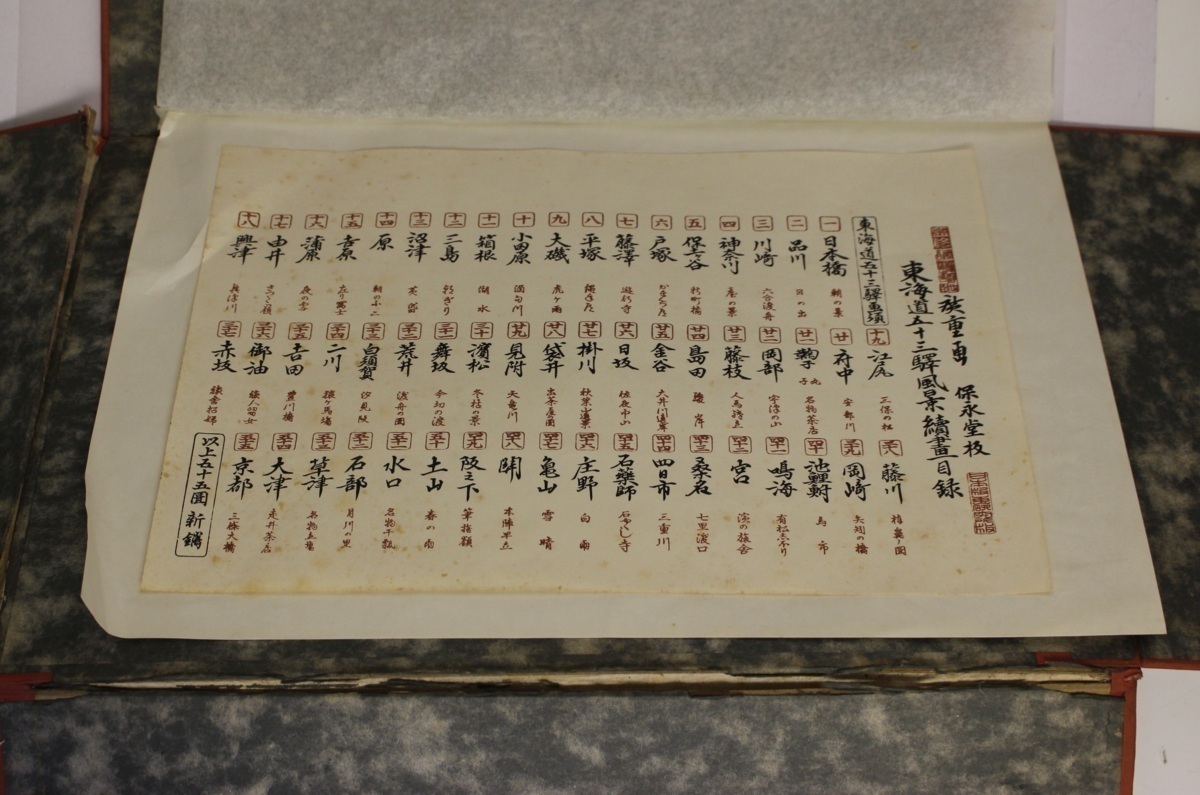 広重画 保永堂板
東海道五十三驛風景續畫目録
東海道五十三驛画項
一 日本橋 朝の景
二 品川 日の出
三 川崎 六合渡舟
四 神奈川 臺の景
五 保土ヶ谷 新町橋
六 戸塚
七 藤澤 遊行寺
八 平塚 縄手
九 大磯 虎ヶ雨
十 小田原 酒匂川
十一 箱根 湖水
十二 三島 朝ぎり
十三 沼津
十四 原 朝の不二
十五 吉原 左り冨士
十六 蒲原 夜の雪
十七 由井 さつた嶺
十八 興津 興津川
十九 江尻 三保の松
廿 府中 安部川
廿一 鞠子 名物茶店
廿二 岡部 宇津の山
廿三 藤枝 人馬継立
廿四 島田
廿五 金谷 大井川遠岸
廿六 日坂 佐夜中山
廿七 掛川 秋葉山遠景
廿八 袋井 出茶屋の圖
廿九 見附 天竜川
三十 濱松 冬枯の景
卅一 舞坂 今切の渡
卅二 荒井 渡舟の圖
卅三 白須賀 汐見阪
卅四 二川 猿ヶ馬塲
卅五 吉田 豊川橋
卅六 御油 旅人留女
卅七 赤坂 旅舎招婦
卅八 藤川 棒鼻ノ圖
卅九 岡崎 矢矧の橋
四十 池鯉鮒 馬市
四十一 鳴海 有松しぼり
四十二 宮 濱の旅舎
四十三 桑名 七里渡口
四十四 四日市 三重川
四十五 石藥師 石やくし寺
四十六 庄野 白雨
四十七 亀山 雪晴
四十八 関 本陣早立
四十九 阪之下 筆捨嶺
五十 土山 春の雨
五十一 水口 名物干瓢
五十二 石部 目川の里
五十三 草津 名物立場
五十四 大津 走井茶店
五十五 京都 三條大橋
以上五十五圖 新鐫